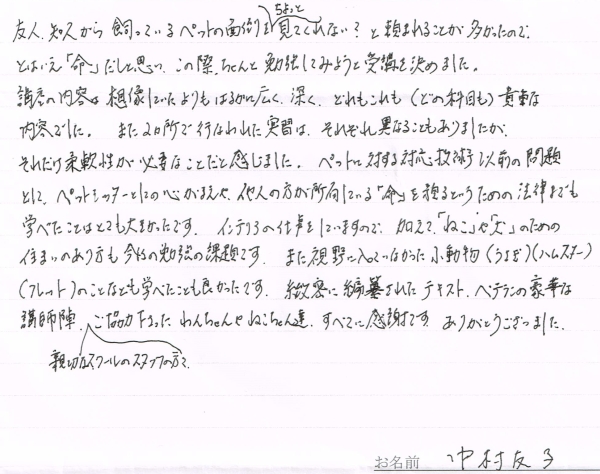 友人、知人から飼っているペットの面倒をちょっと見てくれない？と頼まれることが多かったので、
とはいえ「命」だしと思い、この際、ちゃんと勉強してみようと受講を決めました。
講座の内容は想像していたよりもはるかに広く、深く、どれもこれも（どの科目も）貴重な
内容でした。また2ヵ所で行なわれた実習は、それぞれ異なることもありましたが、
それだけ柔軟性が必要なことだと感じました。ペットに対する対応、技術、以前の問題
として、ペットシッターとしての心がまえや、他人の方が所有している「命」を預るというための法律までも
学べたことはとても大きかったです。インテリアの仕事をしていますので、加えて「ねこ」や「犬」のための
住まいのあり方も今後の勉強の課題です。また視野に入っていなかった小動物（うさぎ）（ハムスター）
（フェレット）のことなども学べたことも良かったです。緻密に編纂されたテキスト、ベテランの豪華な
講師陣、ご協力下さったわんちゃんやねこちゃん達、すべてに感謝です。ありがとうございました。
親切なスクールのスタッフの方々、
お名前 中村友子